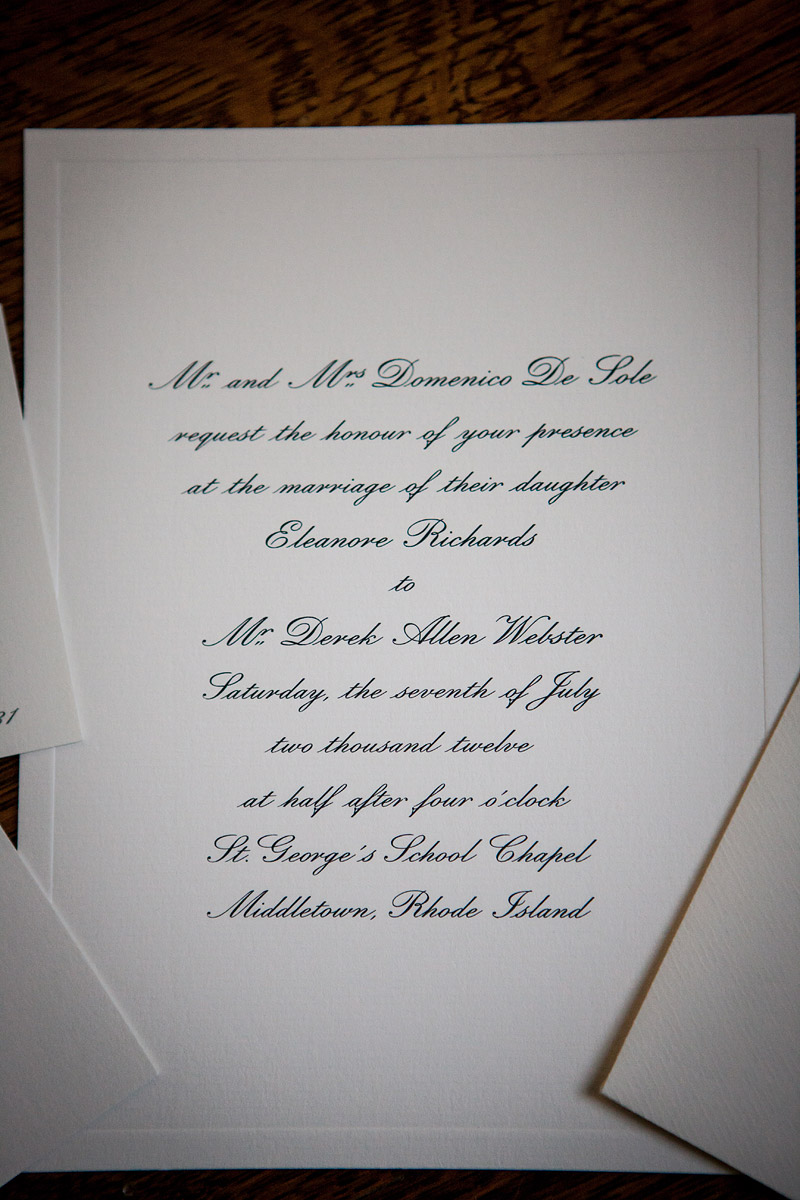 Mr. and Mrs Domenico De Sole
request the honour of your presence
at the marriage of their daughter
Eleanore Richards
to
Mr. Derek Allen Webster
Saturday, the seventh of July
two thousand twelve
at half after four o'clock
St. George's School Chapel
Middletown, Rhode Island